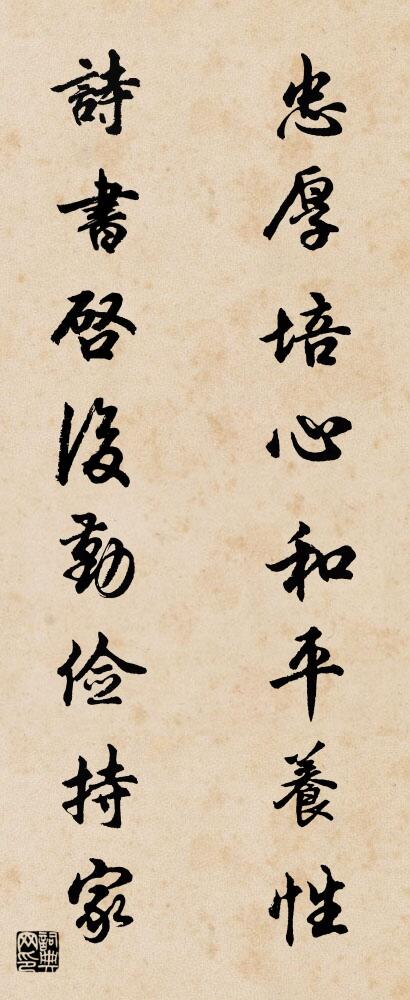 忠厚培心和平養性
詩書啓後勤儉持家
詞典網印